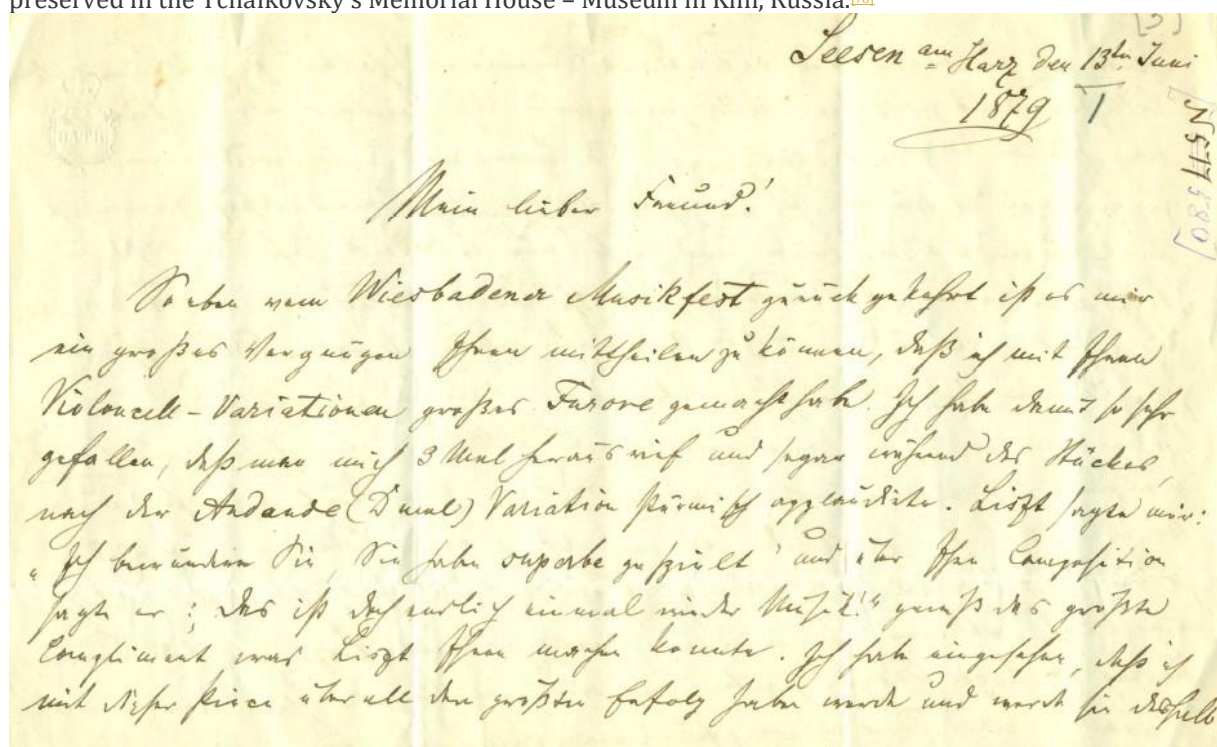 preserved in the Tchaikovsky's Memorial House – Museum in Klin, Russia.
Seesen am Harz den 13ten Juni
1879
Mein lieber Freund!
So eben vom Wiesbadener Musikfest zurückgekehrt ist es mir
ein großes Vergnügen Ihnen mittheilen zu können, daß ich mit Ihren
Violoncell-Variationen großes Furore gemacht habe. Ich habe damit so sehr
gefallen, daß man mich 3 Mal heraus rief und sogar während des Stückes,
nach der Andante (D moll) Variation stürmisch applaudirte. Liszt sagte mir:
„Ich bewundere Sie, Sie haben superbe gespielt" und über Ihre Composition
sagte er: „das ist doch endlich einmal wieder Musik!" gewiß das größte
Compliment was Liszt Ihnen machen konnte. Ich habe eingesehen, daß ich
mit dieser Piece überall den größten Erfolg haben werde und werde sie deshalb